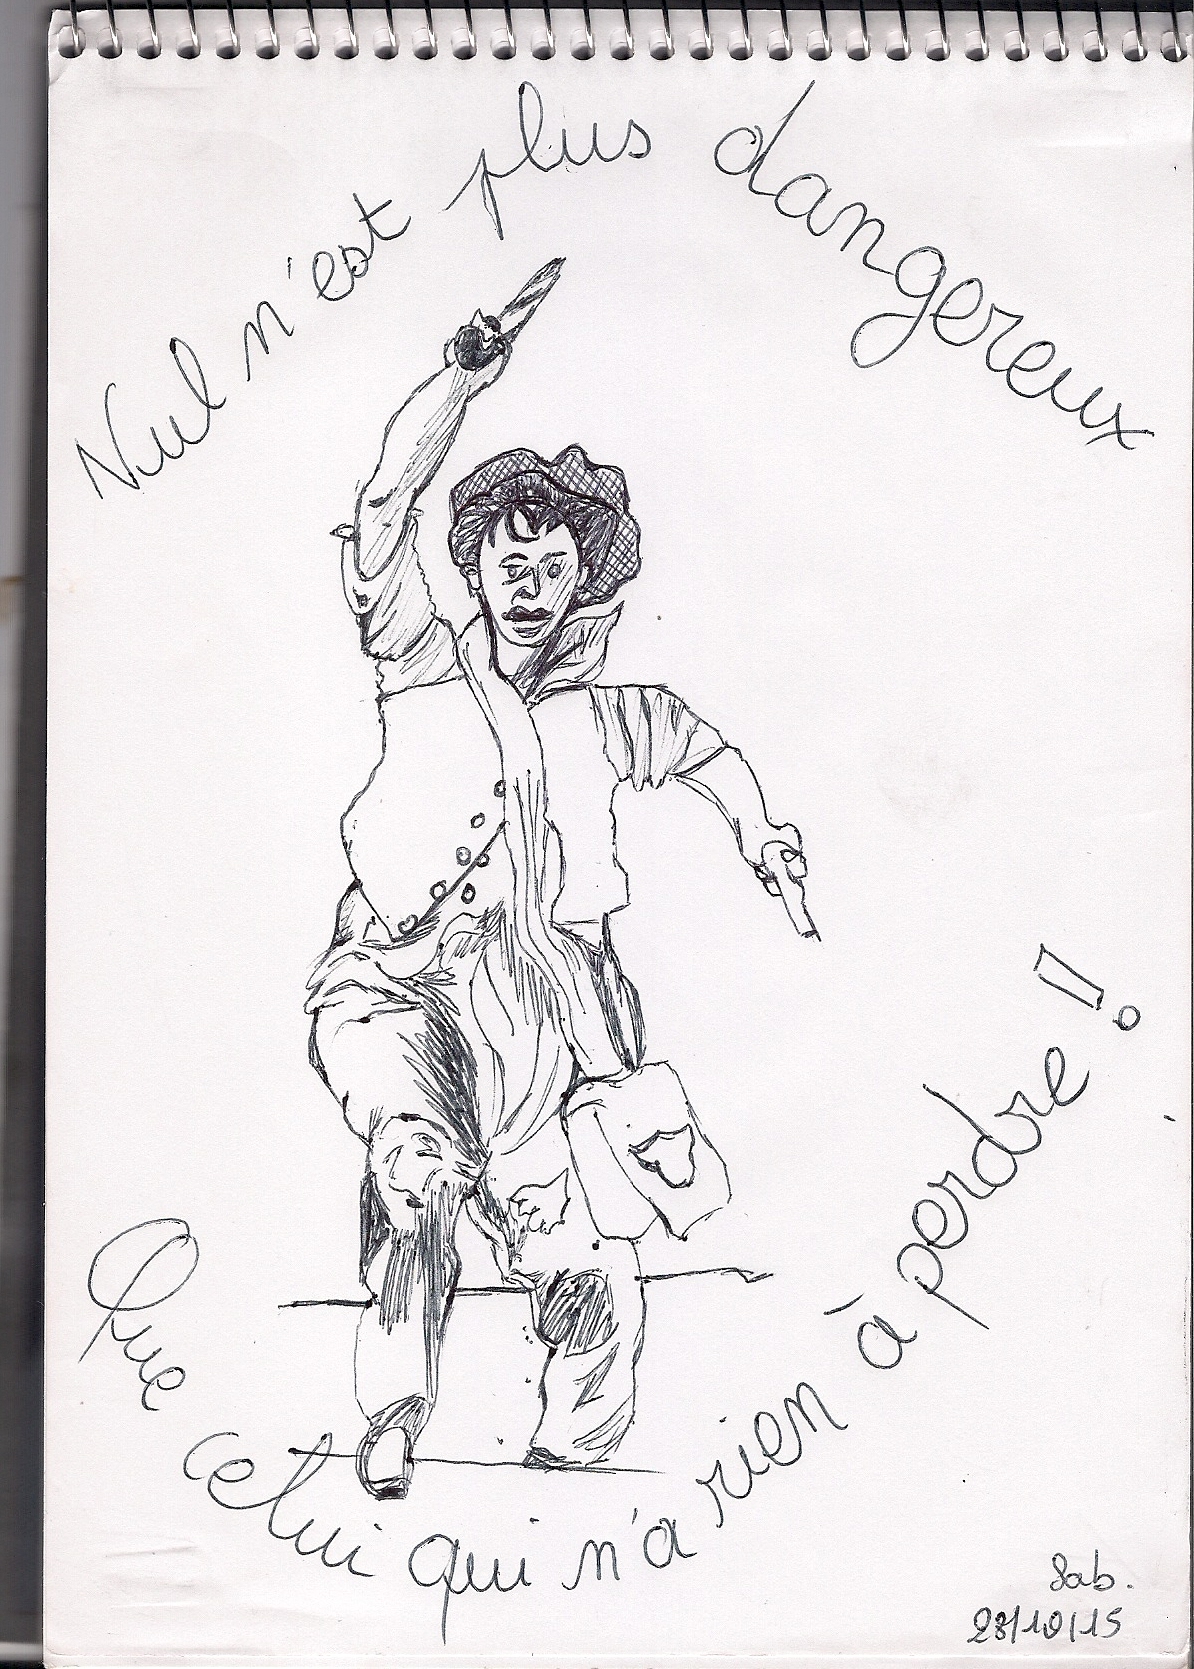 Nul n'est plus dangereux
Que celui qui n'a rien à perdre !
Sab.
28/10/15